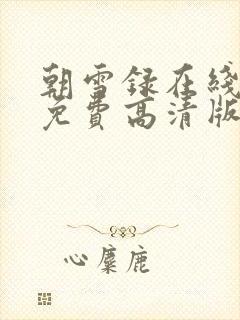 朝雪録在綫
免費高清版
心麋鹿